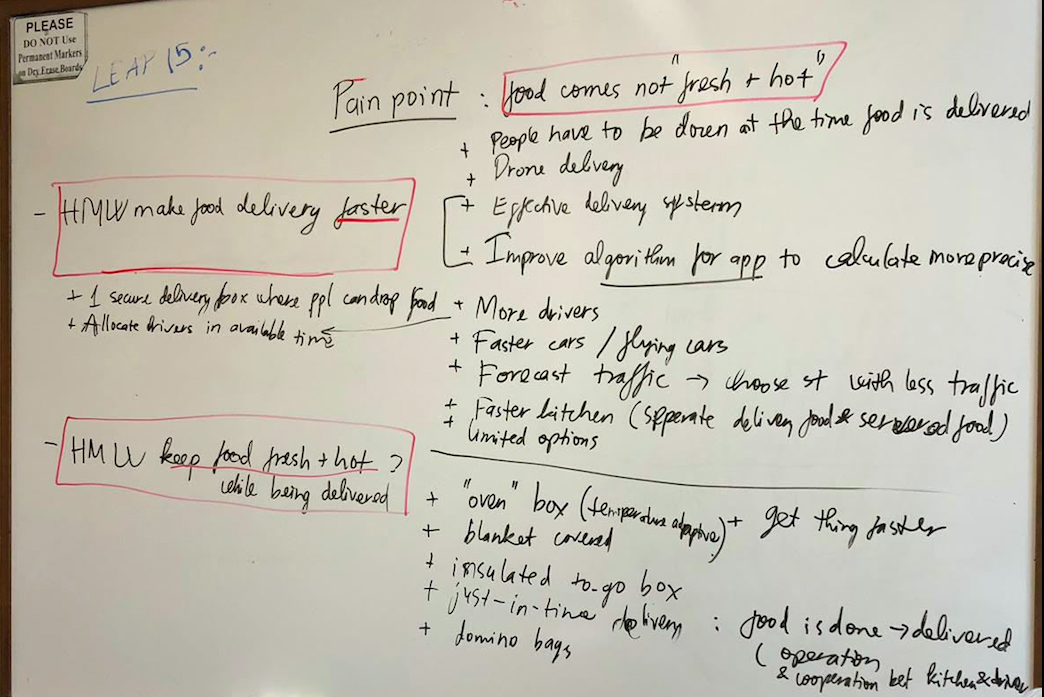 PLEASE
DO NOT Use
Permanent Markers
on Dry Erase Boards
LEAP 15:-
Pain point : food comes not "fresh + hot"
+ People have to be down at the time food is delivered
+ Drone delivery
- HMW make food delivery faster
+ Effective delivery systerm
+ Improve algorithm for app to calculate more precise
+ 1 secure delivery box where ppl can drop food
+ Allocate drivers in available time
+ More drivers
+ Faster cars / flying cars
+ Forecast traffic → choose st with less traffic
+ Faster kitchen (sepperate delivery food & served food)
+ limited options
- HMW keep food fresh + hot ?
while being delivered
+ "oven" box (temperature adaptive) + get thing faster
+ blanket covered
+ insulated to-go box
+ just-in-time delivery : food is done → delivered
( operation
& cooperation bet kitchen & driver
+ domino bags